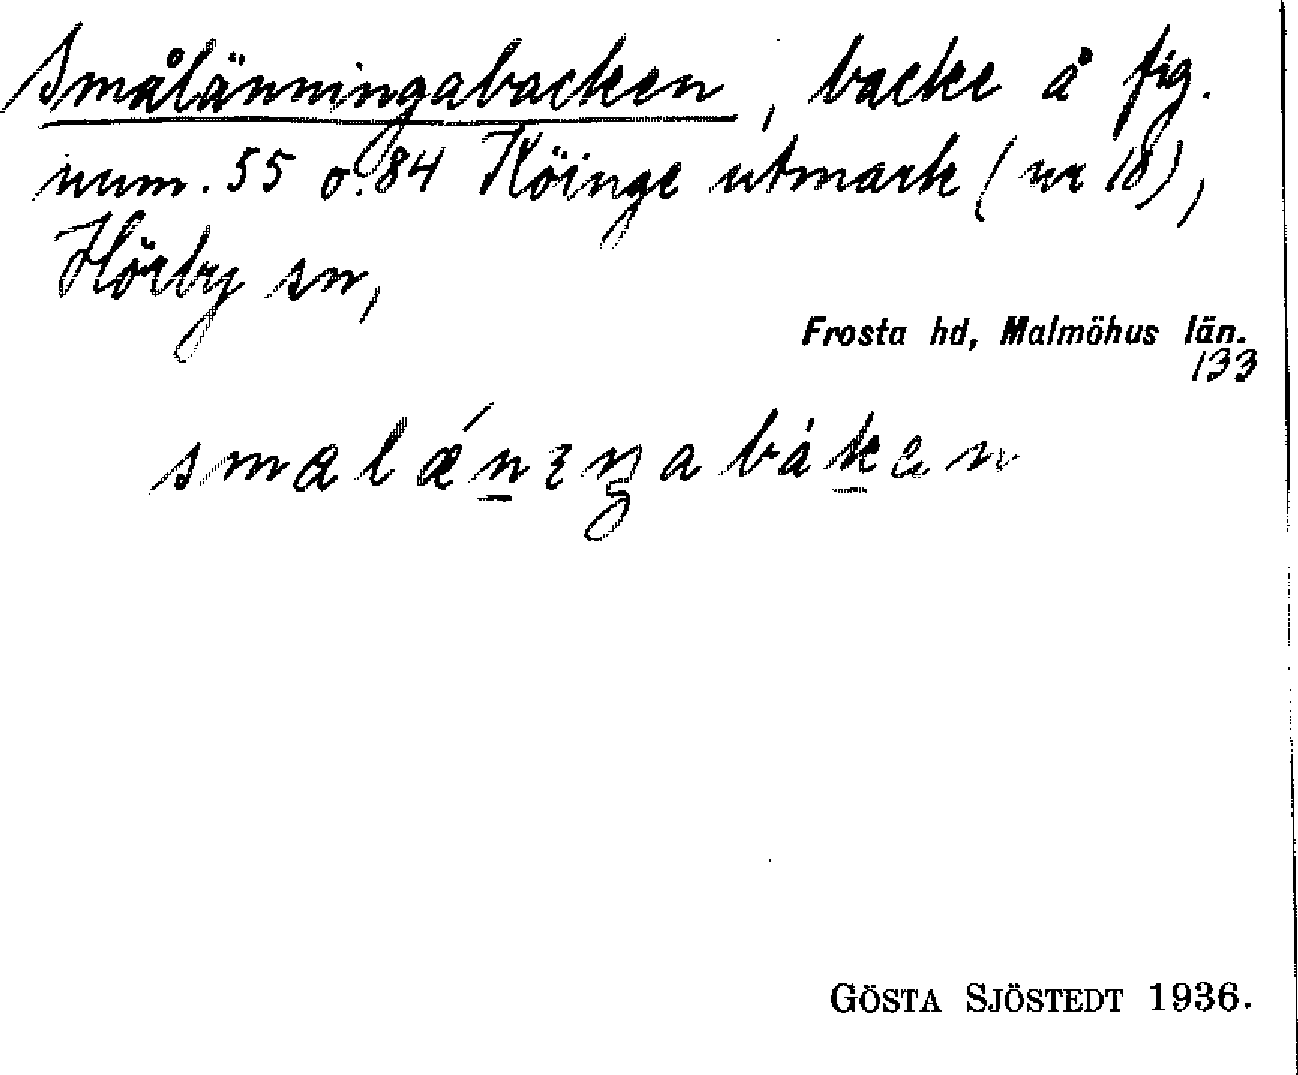 Smålänningabacken, backe å fig.
num. 55 o. 84 Köinge utmark (nr 18),
Hörby sn,
Frosta hd, Malmöhus län.
133
smalǽnıŋabákan
GÖSTA SJÖSTEDT 1936.